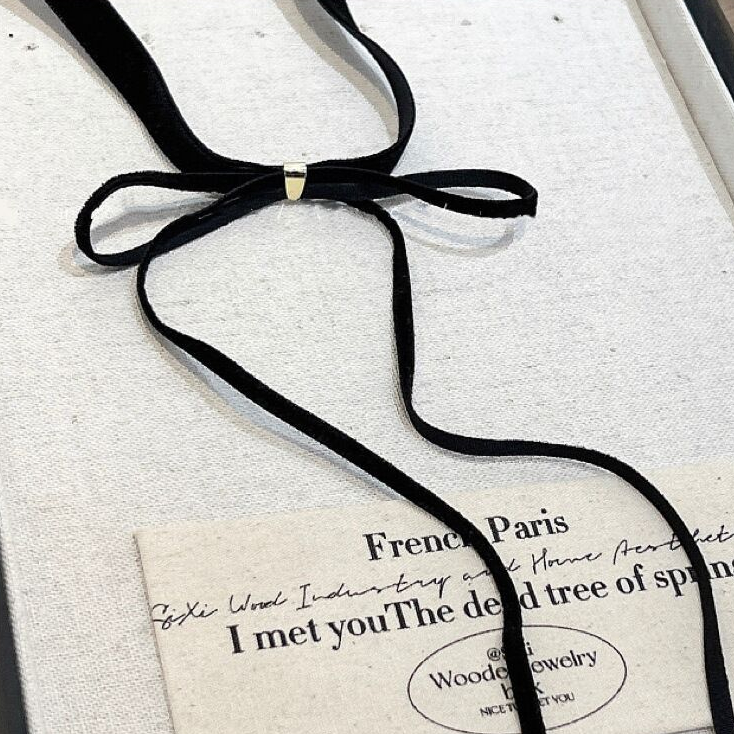 French Paris
SiXi Wood Industry and Home Aesthet
I met youThe dead tree of spring
Wooden Jewelry
NICE TO MEET YOU